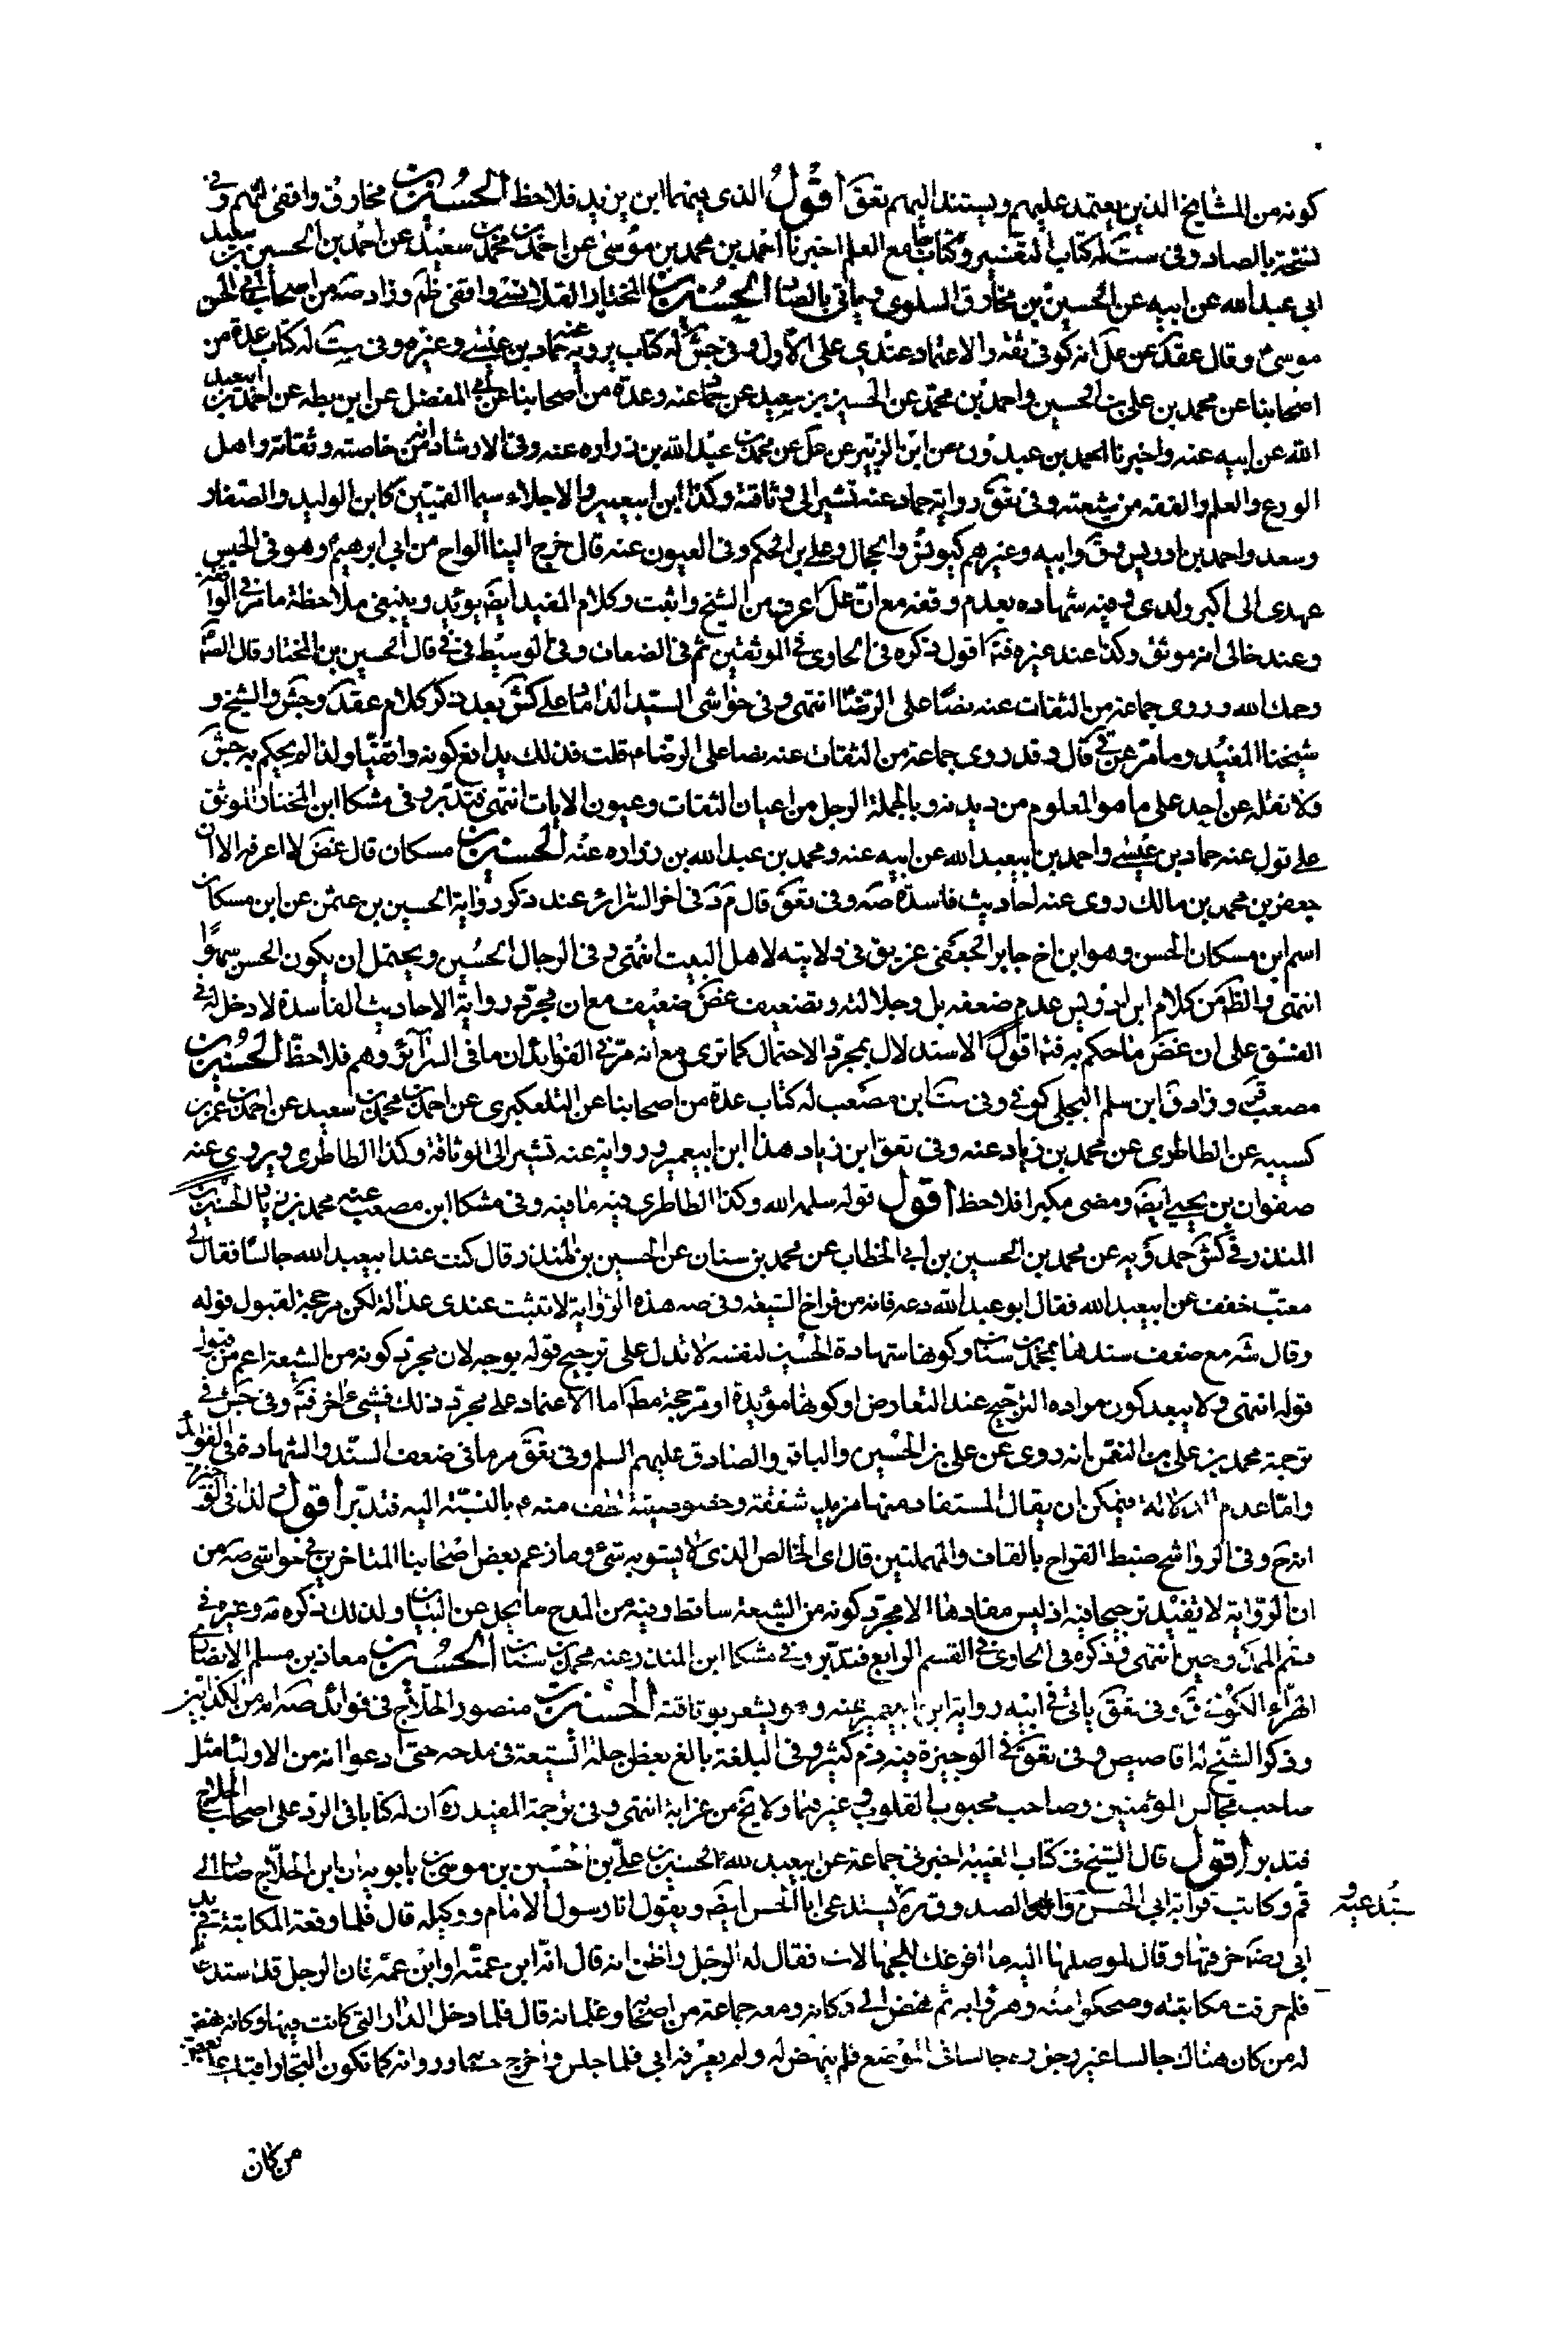 كونه من المشايخ الذين يعتمد عليهم ويستند اليهم تعق اقول الذى بينهما ابن يزيد فلاحظ الحسين بن مخارق واقفى لم وفى
نسخة بالصاد وفى ست له كتاب التفسير وكتاب جامع العلم اخبرنا احمد بن محمد بن موسى عن احمد بن محمد بن سعيد عن احمد بن الحسين بن سعيد
ابى عبد الله عن ابيه عن الحسين بن مخارق السلولى وياتى بالصاد الحسين بن المختار القلانسى واقفى ظم وزاد صه من اصحاب ابى الحسن
موسى وقال عقد عن عل انه كوفى ثقه والاعتماد عندى على الاول وفى جش له كتاب يرويه عنه حماد بن عيسى وغيره وفى ست له كتاب عدة من
اصحابنا عن محمد بن على بن الحسين واحمد بن محمد عن الحسين بن سعيد عن حماد عنه وعدة من اصحابنا عن ابى المفضل عن ابن بطه عن احمد بن ابيعبد
الله عن ابيه عنه واخبرنا احمد بن عبدون عن ابن الزبير عن عل عن محمد بن عبد الله بن زراره عنه وفى الارشاد انه من خاصته وثقاته واهل
الورع والعلم والفقه من شيعته وفى تعق رواية حماد عنه تشير الى وثاقته وكذا ابن ابيعمير والاجلاء سيما القميين كابن الوليد والصفار
وسعد واحمد بن ادريس وق وابيه وغيرهم كيونس والجمال وعلى بن الحكم وفى العيون عنه قال خرج الينا الواح من ابى ابرهيم وهو فى الحبس
عهدى الى اكبر ولدى وفيه شهاده بعدم وقفه مع ان عل اعرف من الشيخ واثبت وكلام المفيد ايض يؤيد وينبغى ملاحظة ما مر فى الواقفه
وعند خالى انه موثق وكذا عند غيره فت اقول ذكره فى الحاوى فى الموثقين ثم فى الضعاف وفى الوسيط فى فى قال الحسين بن المختار قال الص
رحمك الله وروى جماعة من الثقات عنه نصا على الرضا انتهى وفى حواشى السيد الداماد على كش بعد ذكر كلام عقد وجش والشيخ و
شيخنا المفيد وما مر عن فى قال وقد روى جماعة من الثقات عنه نصا على الرضا م قلت فذلك يدافع كونه واقفيا ولذا لم يحكم به جش
ولا نقله عن احد على ما هو المعلوم من ديدنه وبالجملة الرجل من اعيان الثقات وعيون الاثبات انتهى فتدبر وفى مشكا ابن المختار الموثق
على قول عنه حماد بن عيسى واحمد بن ابيعبد الله عن ابيه عنه ومحمد بن عبد الله بن زراره عنه الحسين بن مسكان قال غض لا اعرفه الا ان
جعفر بن محمد بن مالك روى عنه احاديث فاسدة صه وفى تعق قال م د فى اخر السرائر عند ذكر رواية الحسين بن عثمن عن ابن مسكان
اسم ابن مسكان الحسن وهو ابن اخ جابر الجعفى غريق فى ولايته لاهل البيت انتهى وفى الرجال الحسين ويحتمل ان يكون الحسن سهوا
انتهى والظ من كلام ابن ادريس عدم ضعفه بل وجلالته وتضعيف غض ضعيف مع ان مجرد رواية الاحاديث الفاسدة لا دخل له فى
الفسق على ان غض ما حكم به فت اقول الاستدلال بمجرد الاحتمال كما ترى مع انه مر فى الفوايد ان ما فى السرائر وهم فلاحظ الحسين بن
مصعب ق وزاد ق ابن سلم البجلى كوفى وفى ست ابن مصعب له كتاب عدة من اصحابنا عن التلعكبرى عن احمد بن محمد بن سعيد عن احمد بن عمر بن
كسيبه عن الطاطرى عن محمد بن زياد عنه وفى تعق ابن زياد هذا ابن ابيعمير ورواية عنه تشير الى الوثاقة وكذا الطاطرى ويروى عنه
صفوان بن يحيى ايض ومضى مكبرا فلاحظ اقول قوله سلمه الله وكذا الطاطرى فيه ما فيه وفى مشكا ابن مصعب عنه محمد بن زياد الحسين بن
المنذر فى كش حمدويه عن محمد بن الحسين بن ابى الخطاب عن محمد بن سنان عن الحسين بن المنذر قال كنت عند ابيعبد الله جالسا فقال لى
معتب خفف عن ابيعبد الله فقال ابو عبد الله دعه فانه من فراخ الشيعه وفى صه هذه الرواية لا تثبت عندى عدالة لكن مرجحة لقبول قوله
وقال شه مع ضعف سندها بمحمد بن سنان وكونها شهادة الحسين لنفسه لا تدل على ترجيح قوله بوجه لان مجرد كونه من الشيعة اعم من قبول
قوله انتهى ولا يبعد كون مراده الترجيح عند التعارض او كونها مؤيدة او مرجحة مط اما الاعتماد على مجرد ذلك فشىء اخر فت وفى جش فى
ترجمة محمد بن على بن النعمن انه روى عن على بن الحسين والباقر والصادق عليهم السلم وفى تعق مر ما فى ضعف السند والشهادة فى الفوائد
واما عدم الدلالة فيمكن ان يقال المستفاد منها مزيد شفقة وخصوصية لطف منه م بالنسبة اليه فتدبر اقول لذا فى القو خير
اندح وفى الرواشح ضبط القراح بالقاف والمهملتين قال اى الخالص الذى لا يشوبه شىء وما زعم بعض اصحابنا المتاخرين فى حواشى صه من
ان الرواية لا تفيد ترجيحا فيه اذ ليس مفادها الا مجرد كونه من الشيعة ساقط وفيه من المدح ما يجل عن البيان ولذلك ذكره مه وغيره فى
قسم الممدوحين انتهى وذكره فى الحاوى فى القسم الرابع فتدبر وفى مشكا ابن المنذر عنه محمد بن سنان الحسين بن معاذ بن مسلم الانصارى
الهراء الكوفى ق وفى تعق ياتى فى ابيه رواية ابن ابيعمير عنه وهو يشعر بوثاقته الحسين بن منصور الحلاج فى فوائد صه انه من الكذابين
وذكر الشيخ له اقاصيص وفى تعق فى الوجيزة فيه ذم كثير وفى البلغة بالغ بعض جلة الشيعة فى مدحه حتى ادعوا انه من الاولياء مثل
صاحب مجالس المؤمنين وصاحب محبوب القلوب وغيرهما ولا يخ من غرابة انتهى وفى ترجمة المفيد ره ان له كتابا فى الرد على اصحاب الحلاج
فتدبر اقول قال الشيخ فى كتاب الغيبة اخبرنى جماعة عن ابيعبد الله الحسين بن على بن الحسين بن موسى بن بابويه ان ابن الحلاج صار الى
قم وكاتب قرابة ابى الحسن والد الصدوق ره يستدعى ابا الحسن ايض ويقول انا رسول الامام ووكيله قال فلما وقعت المكاتبة فى يد
يستدعيه و
ابى رض خرقها وقال لموصلها اليه ما افرغك للجهالات فقال له الرجل واظن انه قال انه ابن عمته او ابن عمه فان الرجل قد استدعانا
فلم خرقت مكاتبته وضحكوا منه وهزوا به ثم نهض الى دكانه ومعه جماعة من اصحابه وغلمانه قال فلما دخل الدار التى كانت فيها دكانه نهض
له من كان هناك جالسا غير رجل رءه جالسا فى الموضع فلم ينهض له ولم يعرفه ابى فلما جلس واخرج حسابه ودواته كما تكون التجار اقبل على بعض
من كان